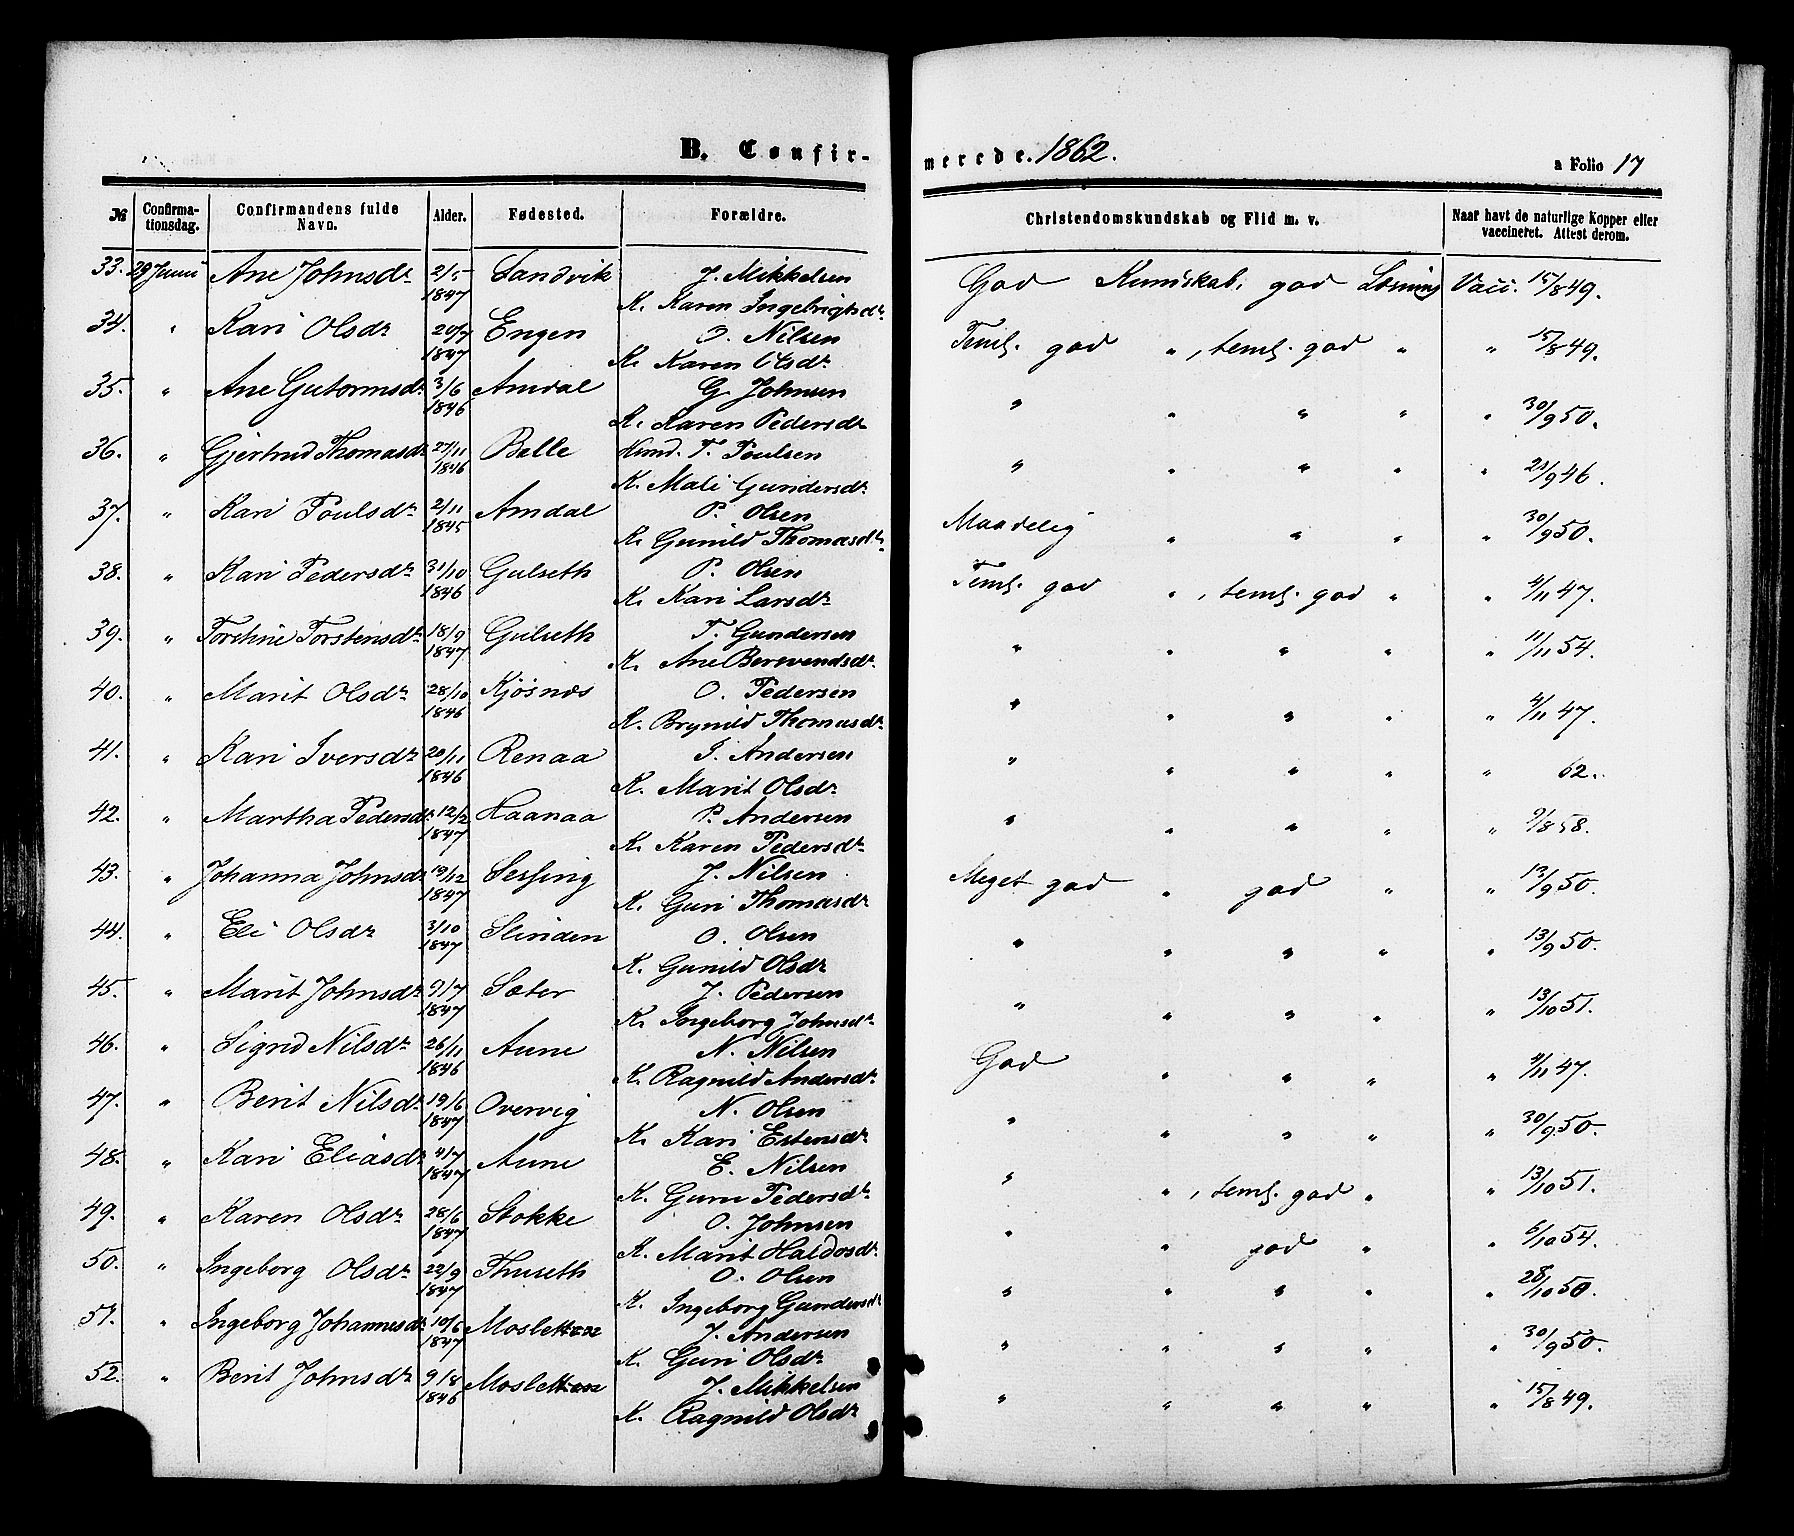 B. Confir-
merede. 1862.
a Folio 17
№ Confirma-tionsdag. Confirmandens fulde Navn. Alder. Fødested. Forældre. Christendomskundskab og Flid m. v. Naar havt de naturlige Kopper eller vaccineret. Attest derom.
33. 29 Juni Ane Johnsdr 2/5 Sandvik J. Mikkelsen God Kundskab, god Læsning Vacc. 15/8 49.
1847 K. Karen Ingebrigtsdr
34. " Kari Olsdr 20/7 Engen O. Nilsen Teml. god ", teml. god " " 15/8 49.
1847 K. Karen Olsdr
35. " Ane Gutormsdr 3/6 Amdal G. Johnsen " " " " " 30/9 50.
1846 K. Karen Pedersdr
36. " Gjertrud Thomasdr 27/11 Balle T. Poulsen " " " " " /9 46.
1846 K. Mali Gundersdr
37. " Kari Poulsdr 2/11 Amdal P. Olsen Maadelig " " " " 30/9 50.
1845 K. Gunild Thomasdr
38. " Kari Pedersdr 31/10 Gulseth P. Olsen Teml. god ", teml. god " " 4/11 47.
1846 K. Kari Larsdr
39. " Torstine Torstensdr 18/9 Gulseth T. Gundersen " " " " " 11/11 54.
1847 K. Ane Berevendsdr
40. " Marit Olsdr 28/10 Kjøsnæs O. Pedersen " " " " " 4/11 47.
1846 K. Brynild Thomasdr
41. " Kari Iversdr 20/11 Renaa I. Andersen " " " " " 62.
1846 K. Marit Olsdr
42. " Martha Pedersdr 12/2 Haanaa P. Andersen " " " " " 9/8 58.
1847 K. Karen Pedersdr
43. " Johanna Johnsdr 19/12 Sessing J. Nilsen Meget god " god " " 13/9 50.
1847 K. Guri Thomasdr
44. " Eli Olsdr 3/10 Slinden O. Olsen " " " " " 13/9 50.
1847 K. Gunild Olsdr
45. " Marit Johnsdr 9/7 Sæter J. Pedersen " " " " " 13/10 51.
1847 K. Ingeborg Johnsdr
46. " Sigrid Nilsdr 26/11 Aune N. Nilsen God " " " " 4/11 47.
1846 K. Ragnild Andersdr
47. " Berit Nilsdr 19/6 Overvig N. Olsen " " " " " 30/9 50.
1847 K. Kari Estensdr
48. " Kari Eliasdr 4/7 Aune E. Nilsen " ", teml. god " " 13/10 51.
1847 K. Guru Pedersdr
49. " Karen Olsdr 28/6 Stokke O. Johnsen " " god " " 6/10 54.
1847 K. Marit Haldosdr
50. " Ingeborg Olsdr 22/9 Thuseth O. Olsen " " " " " 28/10 50.
1847 K. Ingeborg Gundersdr
51. " Ingeborg Johannesdr 10/6 J. Andersen " " " " " 30/9 50.
1847 K. Guri Olsdr
52. " Berit Johnsdr 9/8 J. Mikkelsen " " " " " 15/8 49.
1846 K. Ragnild Olsdr